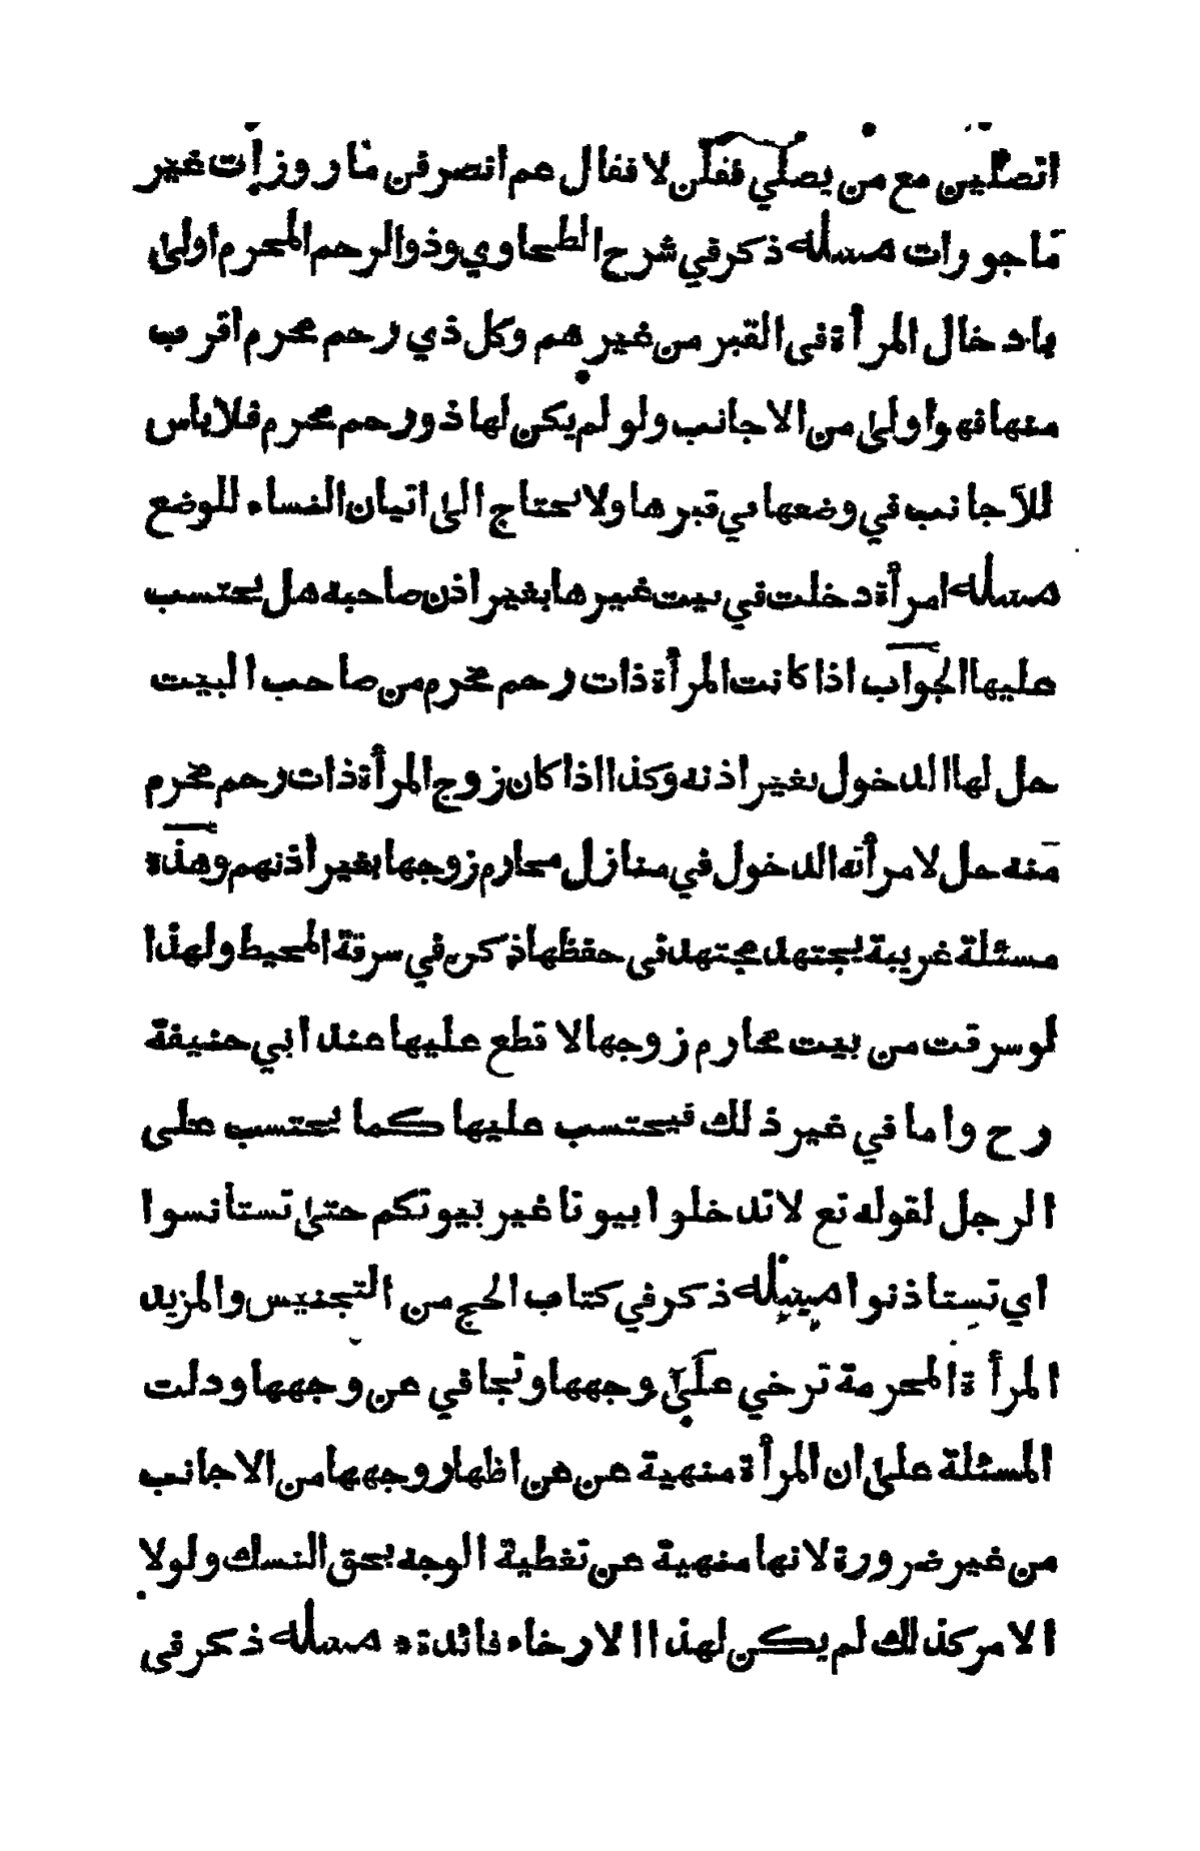 اتصلين مع من يصلي فقلن لا فقال عم انصرفن مازوزرات غير
ماجورات مسئله ذكر في شرح الطحاوي وذو الرحم المحرم اولى
بادخال المرأة في القبر من غيرهم وكل ذي رحم محرم اقرب
منها فهو اولى من الاجانب ولو لم يكن لها ذو رحم محرم فلا باس
للاجانب في وضعها في قبرها ولا يحتاج الى اتيان النساء للوضع
مسئله امرأة دخلت في بيت غيرها بغير اذن صاحبه هل يحتسب
عليها الجواب اذا كانت المرأة ذات رحم محرم من صاحب البيت
حل لها الدخول بغير اذنه وكذا اذا كان زوج المرأة ذات رحم محرم
منه حل لامرأته الدخول في منازل محارم زوجها بغير اذنهم وهذه
مسئلة غريبة يجتهد مجتهد في حفظها ذكرن في سرقة المحيط ولهذا
لو سرقت من بيت محارم زوجها لا قطع عليها عند ابي حنيفة
رح واما في غير ذلك فيحتسب عليها كما يحتسب على
الرجل لقوله تع لا تدخلوا بيوتا غير بيوتكم حتى تستانسوا
اي تستاذنوا مسئله ذكر في كتاب الحج من التجنيس والمزيد
المرأة المحرمة ترخي على وجهها وتجافي عن وجهها ودلت
المسئلة على ان المرأة منهية عن عن اظهار وجهها من الاجانب
من غير ضرورة لانها منهية عن تغطية الوجه بحق النسك ولولا
الامر كذلك لم يكن لهذا الارخاء فائدة * مسئله ذكر في